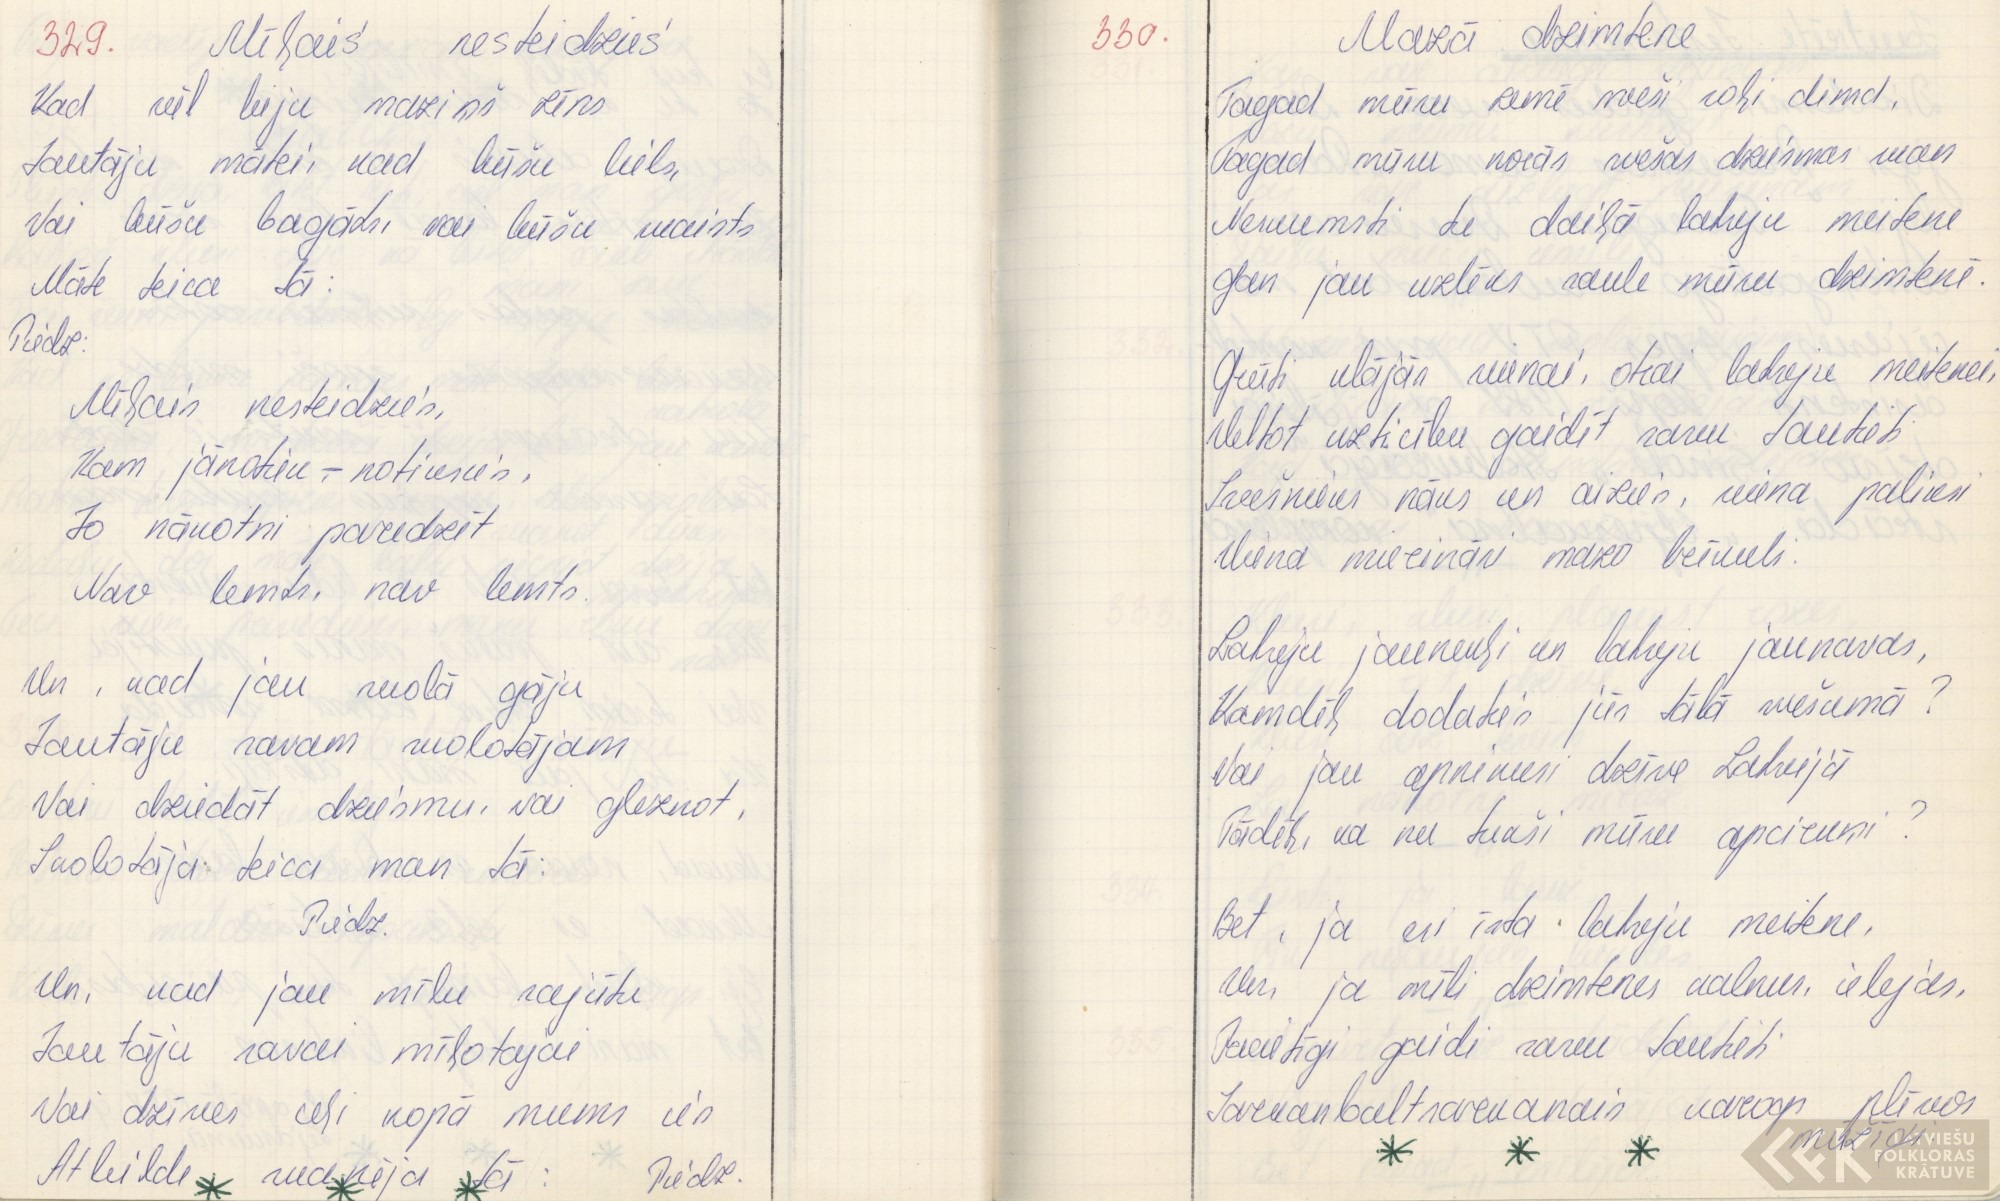 329. Mīļais nesteidzies
Kad vēl biju maziņš zēns
Jautāju mātei, kad būšu liels,
Vai būšu bagāts, vai būšu skaists
Māte teica tā:
Piedz:
Mīļais nesteidzies,
Kam jānotiek – notiksies,
Jo nākotni paredzēt
Nav lemts, nav lemts.
Un, kad jau skolā gāju
Jautāju savam skolotājam
Vai dziedāt dziesmu, vai gleznot,
Skolotāja teica man tā:
Piedz.
Un, kad jau mīlu sajūtu
Jautāju savai mīļotajai
Vai dzīves ceļi kopā mums ies
Atbilde skanēja tā: Piedz.
330. Mazā dzimtene
Tagad mūsu zemē sveši soļi dimd,
Tagad mūsu novās svešas dziesmas skan
Neskumsti tu daiļā latvju meitene
Gan jau uzlēks saule mūsu dzimtenē.
Grūti klājās vienai, otrai latvju meitenei,
Veltot uzticību gaidīt savu tautieti
Svešnieks nāks un aizies, viena paliksi
Viena mierināsi mazo bērneli.
Latvju jaunekļi un latvju jaunavas,
Kamdēļ dodaties jūs tālā svešumā?
Vai jau apnikusi dzīve Latvijā
Tādēļ, ka nu svaši mūsu apcirkņi?
Bet, ja esi īsta latvju meitene,
Un, ja mīli dzimtenes kalnus, ielejas,
Pacietīgi gaidi savu tautieti
Sarkanbaltsarkanais karogs plīvos
mūžīgi
LATVIEŠU
FOLKLORAS
KRĀTUVE